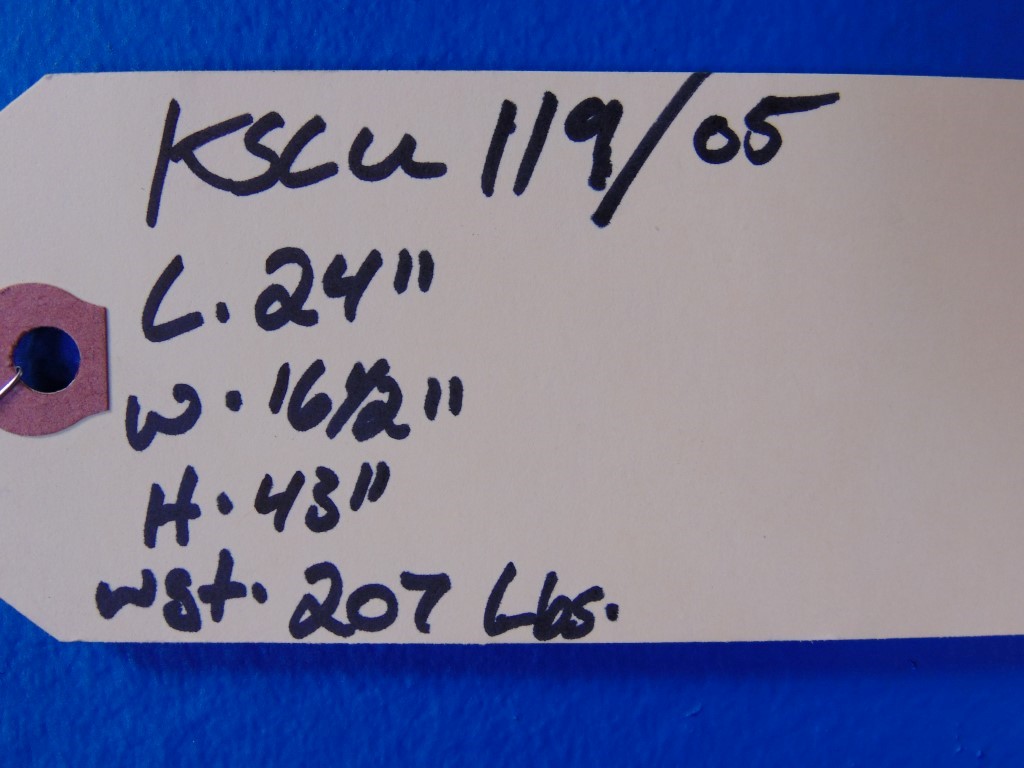 KSCU 119/05
L. 24"
W. 16 1/2"
H. 43"
wgt. 207 Lbs.